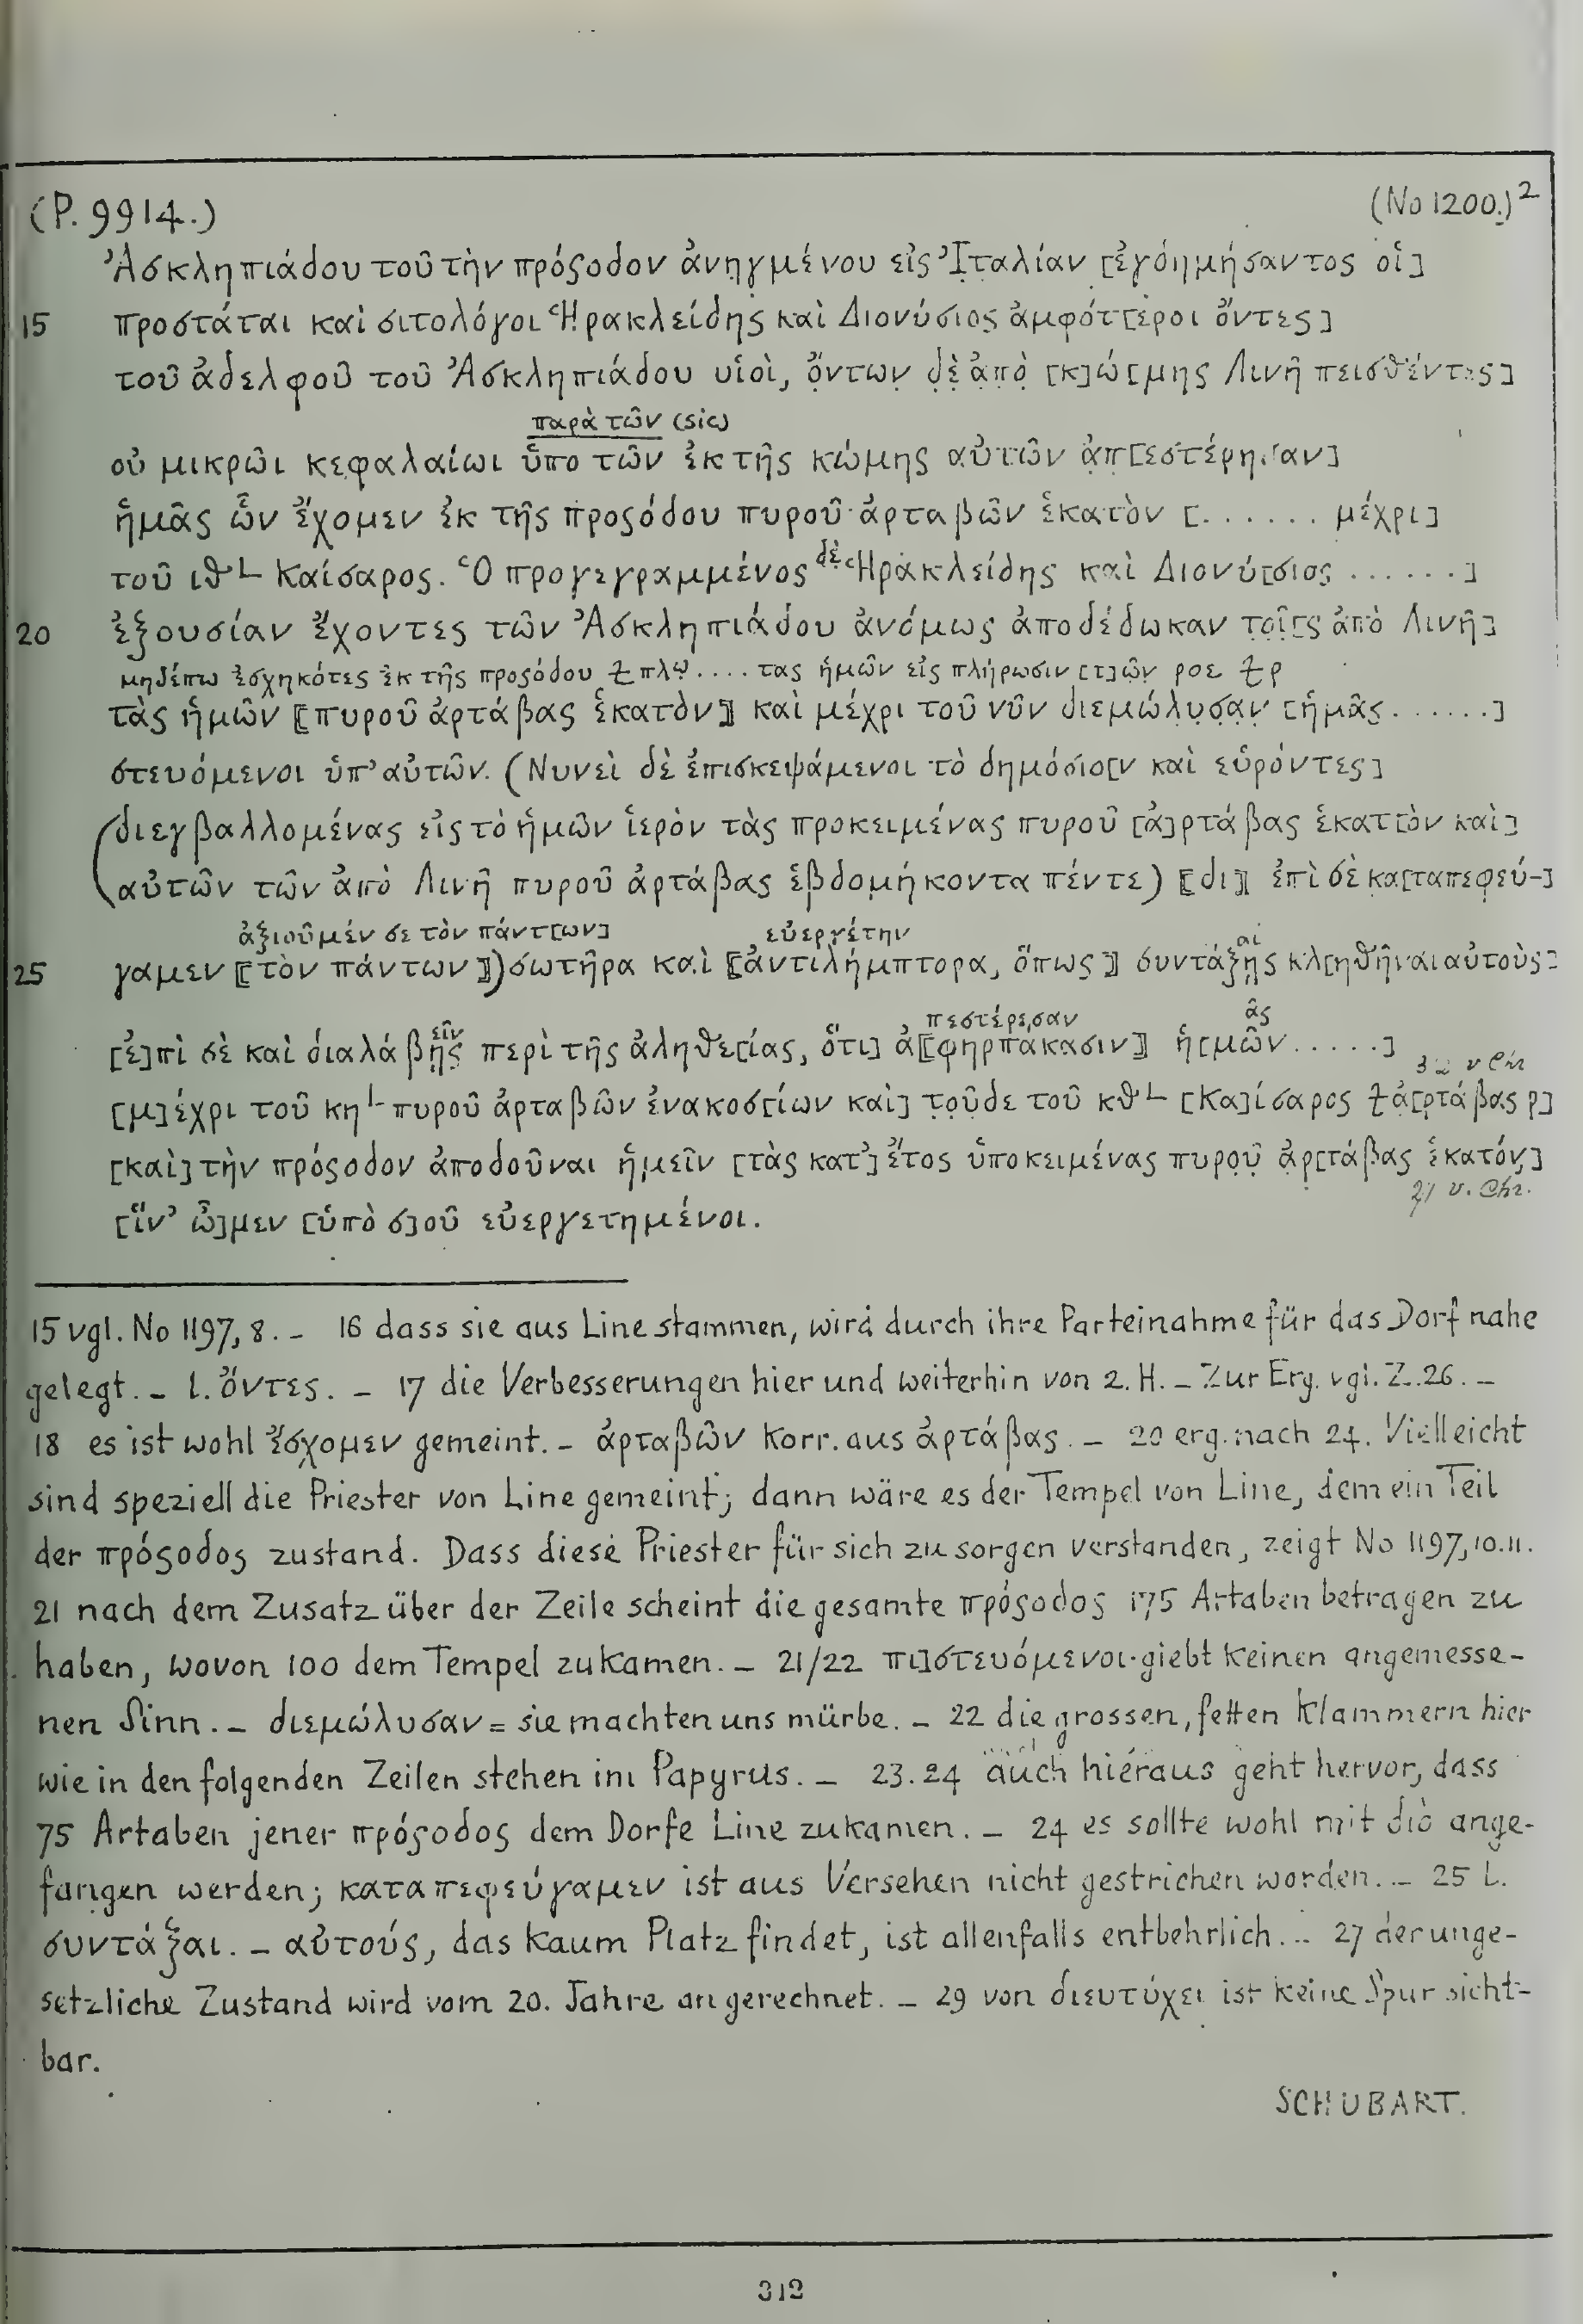 (P. 9914.) (No 1200.)²
Ἀσκληπιάδου τοῦ τὴν πρόςοδον ἀνηγμένου εἰς Ἰταλίαν [ἐγδημήσαντος οἱ]
15 προστάται καὶ σιτολόγοι Ἡρακλείδης καὶ Διονύσιος ἀμφότ[εροι ὄντες]
τοῦ ἀδελφοῦ τοῦ Ἀσκληπιάδου υἱοὶ, ὄντων δὲ ἀπὸ [κ]ώ[μης Λινῆ πεισθέντες]
παρὰ τῶν (sic)
οὐ μικρῶι κεφαλαίωι ὕπο τῶν ἐκ τῆς κώμης αὐτῶν ἀπ[εστέρησαν]
ἡμᾶς ὧν ἔχομεν ἐκ τῆς προςόδου πυροῦ ἀρταβῶν ἑκατὸν [...... μέχρι]
τοῦ ιθ L Καίσαρος. Ὁ προγεγραμμένος δὲ Ἡρακλείδης καὶ Διονύ[σιος ......]
20 ἐξουσίαν ἔχοντες τῶν Ἀσκληπιάδου ἀνόμως ἀποδέδωκαν τοῖ[ς ἀπὸ Λινῆ]
μηδέπω ἐσχηκότες ἐκ τῆς προςόδου .... τας ἡμῶν εἰς πλήρωσιν [τ]ῶν ροε ρ
τὰς ἡμῶν [[πυροῦ ἀρτάβας ἑκατὸν]] καὶ μέχρι τοῦ νῦν διεμώλυσαν [ἡμᾶς ......]
στευόμενοι ὑπ' αὐτῶν. (Νυνεὶ δὲ ἐπισκεψάμενοι τὸ δημόσιο[ν καὶ εὑρόντες]
(διεγβαλλομένας εἰς τὸ ἡμῶν ἱερὸν τὰς προκειμένας πυροῦ [ἀ]ρτάβας ἑκατ[ὸν καὶ]
αὐτῶν τῶν ἀπὸ Λινῆ πυροῦ ἀρτάβας ἑβδομήκοντα πέντε) [[δι]] ἐπὶ σὲ κα[ταπεφεύ-]
ἀξιοῦμέν σε τὸν πάντ[ων] εὐεργέτην
25 γαμεν [[τὸν πάντων]]) σωτῆρα καὶ [[ἀντιλήμπτορα, ὅπως]] συντάξῃς αι κλ[ηθῆναι αὐτοὺς]
πεστέρεσαν ᾶς
[ἐ]πὶ σὲ καὶ διαλάβῃς εῖν περὶ τῆς ἀληθε[ίας, ὅτι] ἀ[[φηρπάκασιν]] ἡ[μῶν .....]
32 v Chr
[μ]έχρι τοῦ κη L πυροῦ ἀρταβῶν ἐνακοσ[ίων καὶ] τοῦδε τοῦ κθ L [Κα]ίσαρος ἀ[ρτάβας ρ]
[καὶ] τὴν πρόςοδον ἀποδοῦναι ἡμεῖν [τὰς κατ'] ἔτος ὑποκειμένας πυροῦ ἀρ[τάβας ἑκατόν,]
v. Chr.
[ἵν' ὦ]μεν [ὑπὸ σ]οῦ εὐεργετημένοι.
15 vgl. No 1197, 8. _ 16 dass sie aus Line stammen, wird durch ihre Parteinahme für das Dorf nahe
gelegt. _ l. ὄντες. _ 17 die Verbesserungen hier und weiterhin von 2. H. _ Zur Erg. vgl. Z. 26. _
18 es ist wohl ἔσχομεν gemeint. _ ἀρταβῶν Korr. aus ἀρτάβας. _ 20 erg. nach 24. Vielleicht
sind speziell die Priester von Line gemeint; dann wäre es der Tempel von Line, dem ein Teil
der πρόςοδος zustand. Dass diese Priester für sich zu sorgen verstanden, zeigt No 1197, 10. 11.
21 nach dem Zusatz über der Zeile scheint die gesamte πρόςοδος 175 Artaben betragen zu
haben, wovon 100 dem Tempel zukamen. _ 21/22 πι]στευόμενοι giebt keinen angemesse-
nen Sinn. _ διεμώλυσαν = sie machten uns mürbe. _ 22 die grossen, fetten Klammern hier
wie in den folgenden Zeilen stehen im Papyrus. _ 23. 24 auch hieraus geht hervor, dass
75 Artaben jener πρόςοδος dem Dorfe Line zukamen. _ 24 es sollte wohl mit διὸ ange-
fangen werden; καταπεφεύγαμεν ist aus Versehen nicht gestrichen worden. _ 25 L.
συντάξαι. _ αὐτούς, das kaum Platz findet, ist allenfalls entbehrlich. _ 27 der unge-
setzliche Zustand wird vom 20. Jahre an gerechnet. _ 29 von διευτύχει ist keine Spur sicht-
bar.
SCHUBART.
312